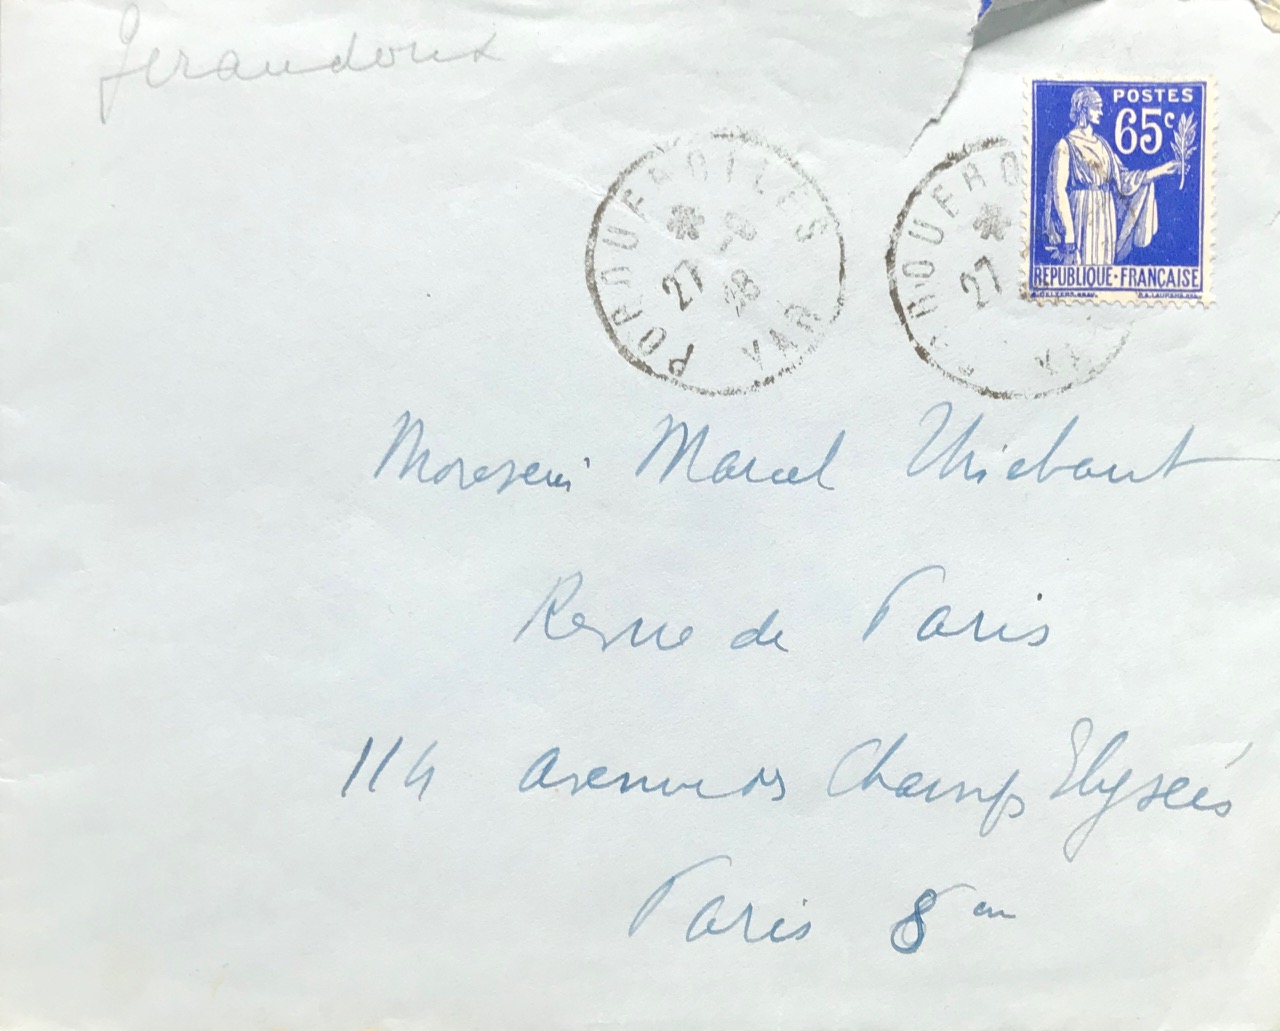 Giraudoux
POSTES
65c
REPUBLIQUE·FRANÇAISE
PORQUEROLLES
27 -8
38
VAR
PORQUERO
27
VA
Monsieur Marcel Thiebaut
Revue de Paris
114 avenue des Champs Elysées
Paris 8em